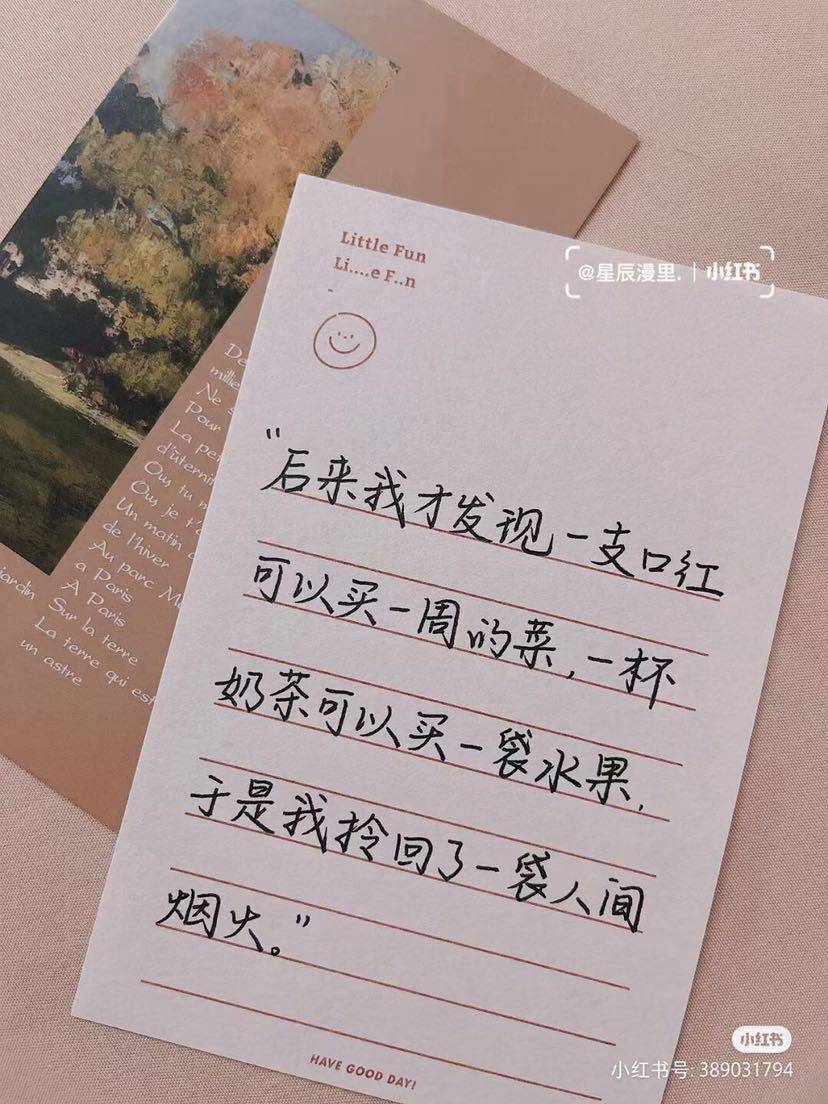 Little Fun
Li....e F..n
@星辰漫里. | 小红书
"后来我才发现一支口红
可以买一周的菜,一杯
奶茶可以买一袋水果,
于是我拎回了一袋人间
烟火。"
HAVE GOOD DAY!
De
millie
Ne s
Pour
La pe
d'üternit
Ouş tu m
Ouş je t'
Un matin
de l'hiver
Au parc M
a Paris
A Paris
jardin Sur la terre
La terre qui est
un astre
小红书
小红书号: 389031794